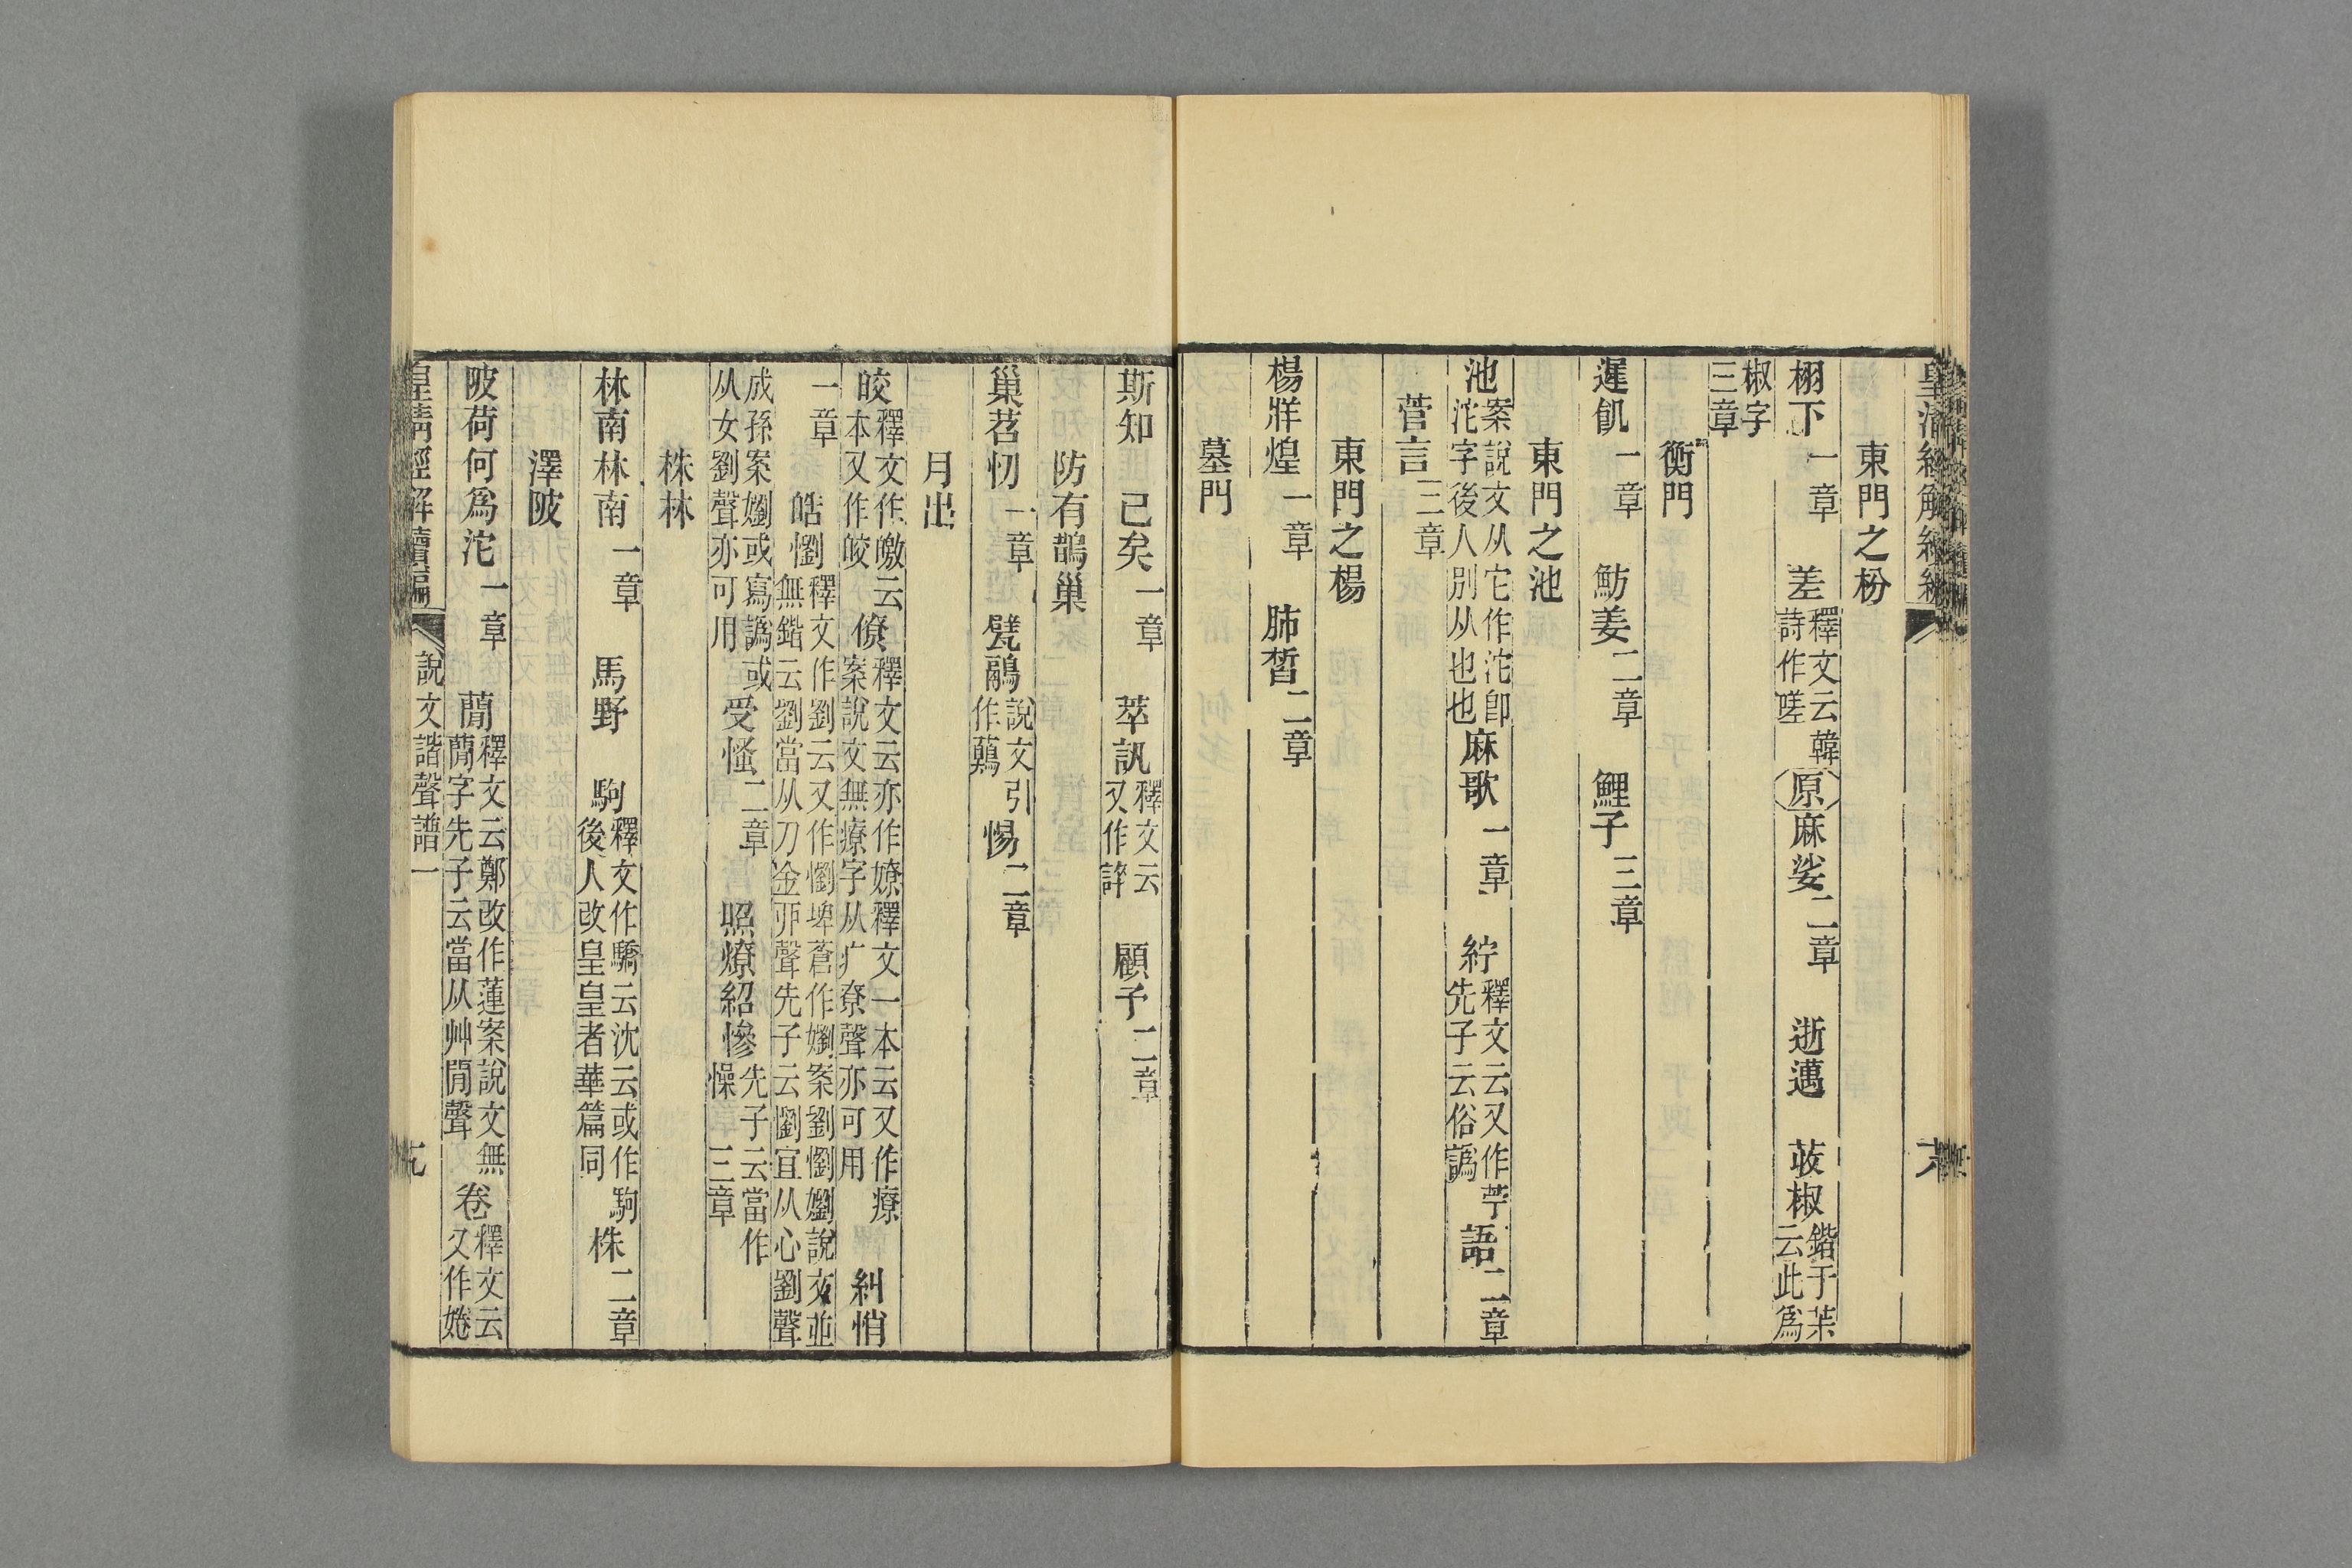 皇清經解續編
東門之枌
栩下一章　差釋文云韓詩作嗟原麻娑二章　逝邁　荍椒鍇于茮云此爲
椒字三章
衡門
遲飢一章　魴姜二章　鯉子三章
東門之池
池案說文从它作沱卽沱字後人別从也也麻歌一章　紵釋文云又作苧先子云俗譌語二章
菅言三章
東門之楊
楊牂煌一章　肺晳二章
墓門
斯知　已矣一章　萃訊釋文云又作誶　顧予二章
防有鵲巢
巢苕忉一章　甓鷊說文引作虉惕二章
月出
皎釋文作皦云本又作皎僚釋文云亦作嫽釋文一本云又作療案說文無療字从疒尞聲亦可用糾悄
一章　皓懰釋文作劉云又作懰埤蒼作嬼案劉懰嬼說文並無鍇云劉當从刀金丣聲先子云劉宜从心劉聲
成孫案嬼或寫譌或从女劉聲亦可用受慅二章　照燎紹慘先子云當作懆三章
株林
林南林南一章　馬野　駒釋文作驕云沈云或作駒後人改皇皇者華篇同株二章
澤陂
陂荷何爲沱一章　蕑釋文云鄭改作蓮案說文無蕑字先子云當从艸閒聲卷釋文云又作婘
皇清經解續編　說文諧聲譜一